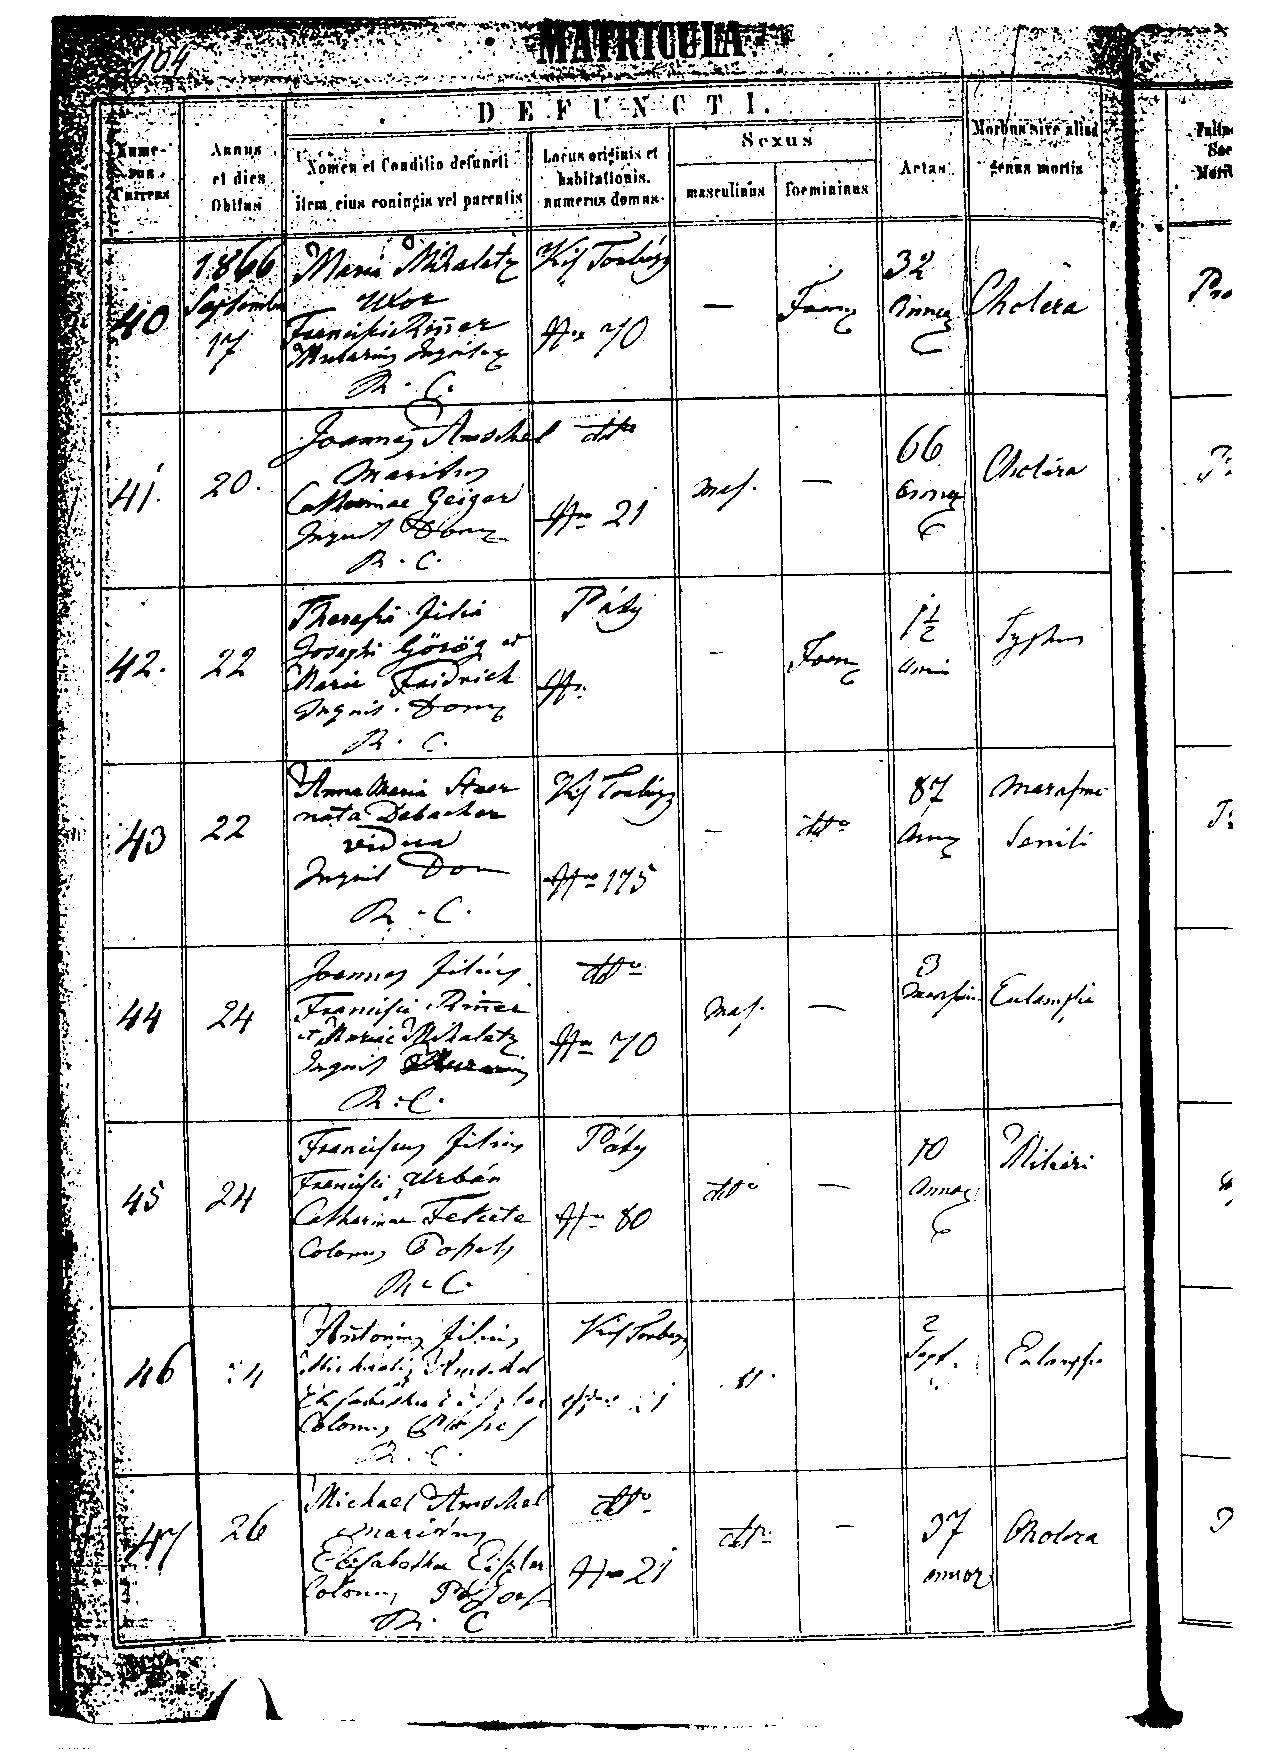 104
MATRICULA
DEFUNCTI.
Nume-
rus
Currens
Annus
et dies
Obitus
Nomen et Conditio defuncti
item eius coniugis vel parentis
Locus originis et
habitationis.
numerus domus.
Sexus
masculinus
foemininus
Aetas
Morbus sive aliud
genus mortis
40
1866
Septembr
17
Maria Mihalatz
uxor
Francisci Riñer
Murarius Inquilex
R. C.
Kis Torbágy
Nro 70
—
Foem
32
annor
Cholera
41.
20.
Joannes Amschel
Maritus
Catharinae Geiger
Inquil Dom
R. C.
dto
Nro 21
Mas.
—
66
annor
Cholera
42.
22
Theresia filia
Josephi Görög et
Mariae Faidrich
Inquil. Dom
R. C.
Páty
Nr.
—
Foem
1 1/2
anni
Typhus
43
22
Anna Maria
nata Debacher
vidua
Inquil Dom
R. C.
Kis Torbágy
Nro 175
—
dto
87
Ann
Marasmus
Senili
44
24
Joannes filius
Francisci Riñer
et Mariae Mihalatz
Inquil Murarius
R. C.
dto
Nro 70
Mas.
—
3
Mensium
Eclampsia
45
24
Franciscus filius
Francisci Urbán
Catharinae Fekete
Colonus
R. C.
Páty
Nro 80
dto
—
10
annor
46
24
Antonius filius
Michaelis Amschel
Elisabetha
Colonus
R. C.
Kis Torbágy
2
Sept.
Eclampsia
47
26
Michael Amschel
maritus
Elisabethae Eiszler
Colonus
R. C
dto
Nro 21
dto
—
37
annor
Cholera